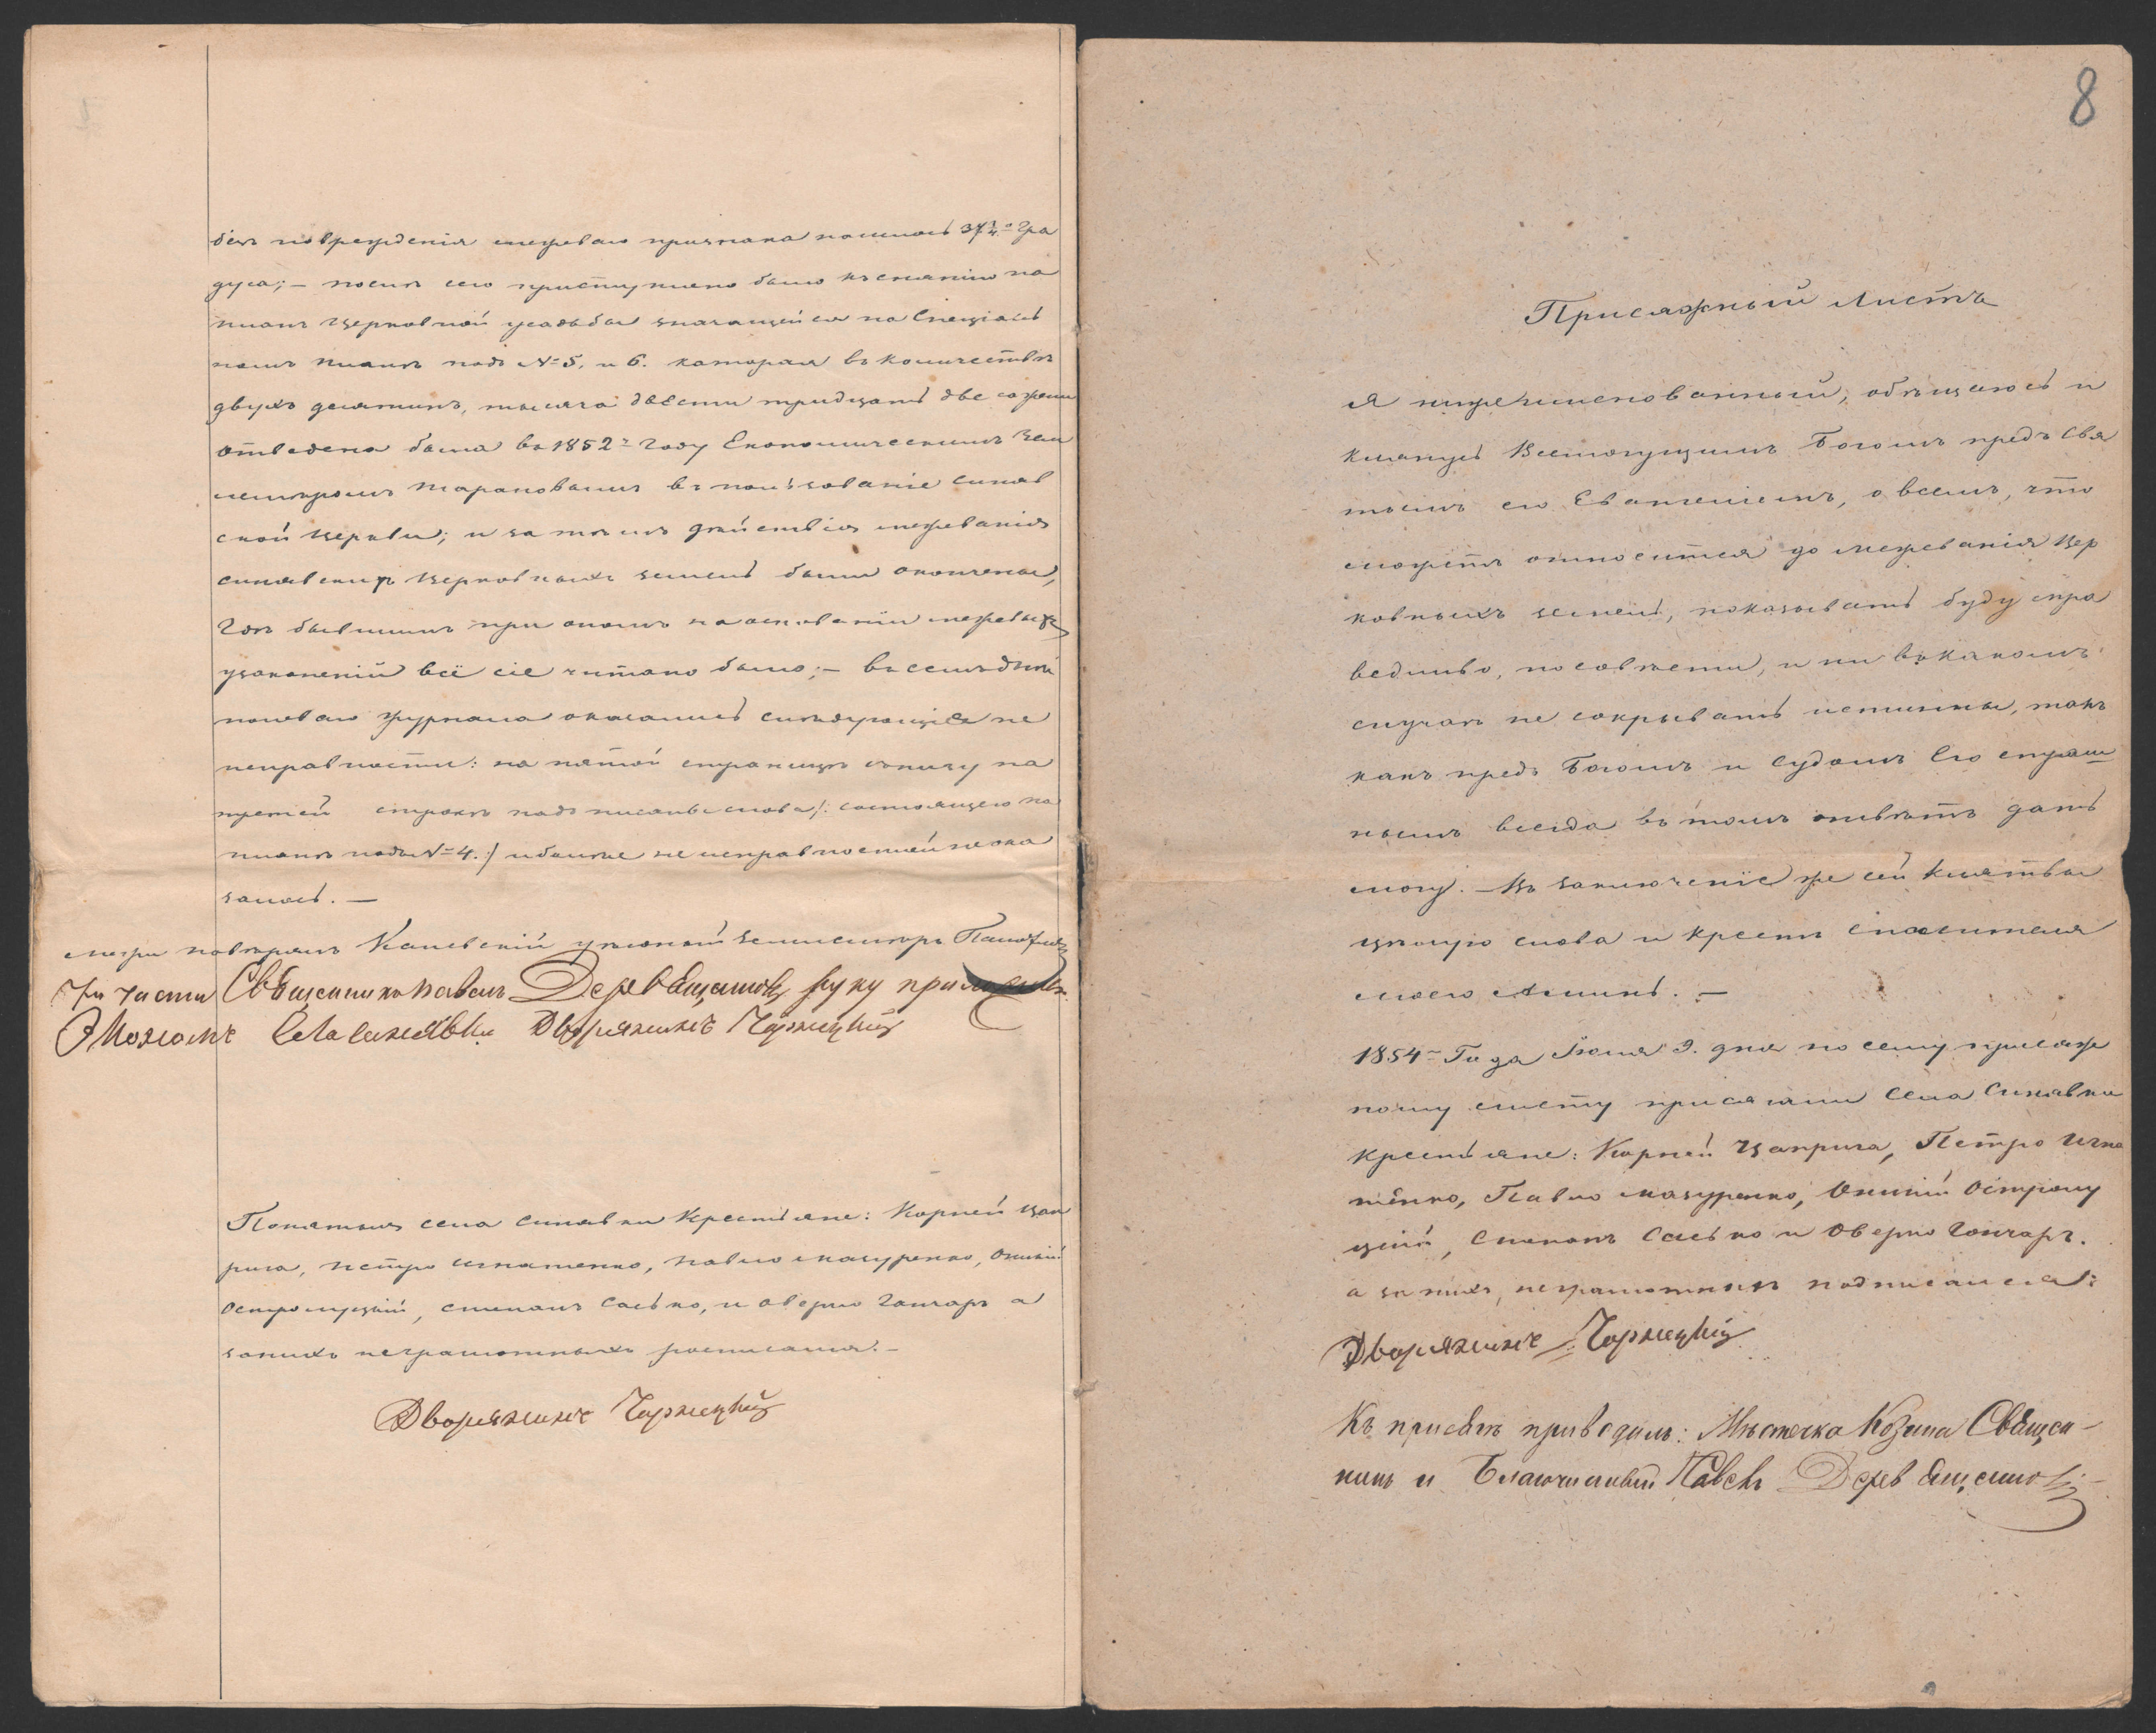 безъ повреждения межеваго признака 37¾ᵒ Гра
дуса; — послѣ сего приступлено было къ снятію на
планъ Церковной усадьбы значащейся на Спеціаль
номъ планѣ подъ № 5, и 6. которая въ количествѣ
двухъ десятинъ, тысяча двести тридцать две сажени
отведена была въ 1852ᵐ Году Економическимъ Зем
лемѣромъ Тарановымъ въ пользованіе синяв
ской Церкви; и за тѣмъ дѣйствія межеванія
синявскихъ Церковныхъ земель были окончены,
бывшимъ при ономъ на основаніи межевыхъ
узаконеній всё сіе читано было; — въ семъ
полеваго журнала оказались слѣдующіе не
исправности: на пятой страницѣ снизу на
третей строкѣ надъ писаны слова /: состоящего на
планѣ подъ № 4. :/ и болѣе неисправностей не ока
залось. —
повѣрялъ Каневскій уѣздный Землемѣръ
При части Священникъ Павелъ Деревенщиковъ руку приложилъ
Села синявки Дворянинъ Чарнецкій
Понятыя села синявки Крестьяне: Корней Цап
рига, петро игнатенко, павло мазуренко,
Остромуцкій, степанъ сасько, и оверко Гончаръ а
за нихъ неграмотныхъ росписался. —
Дворянинъ Чарнецкій
8
Присяжный Листъ
Я нижеименованный, обѣщаюсь и
клянусь Всемогущимъ Богомъ предъ Свя
тымъ его Евангеліемъ, о всемъ, что
можетъ относится до межеванія Цер
ковныхъ земель, показывать буду спра
ведливо, по совѣсти, и ни въ какомъ
случаѣ не сокрывать истинны, такъ
какъ предъ Богомъ и Судомъ Его страш
нымъ всегда въ томъ отвѣтъ дать
могу. — Въ заключеніе же сей Клятвы
цѣлую слова и Крестъ спасителя
моего Аминь. —
1854ᵐ Года Июня 9. дня по сему присяж
ному листу присягали Села Синявки
Крестьяне: Корней Цаприга, Петро Игна
тенко, Павло мазуренко, Остромуц
кій, Степанъ Сасько и Оверко Гончаръ.
а за нихъ, неграмотныхъ подписался:
Дворянинъ Чарнецкій
Къ присягѣ приводилъ: Мѣстечка Козина Священ-
никъ и Благочинный Павелъ Деревенщиковъ